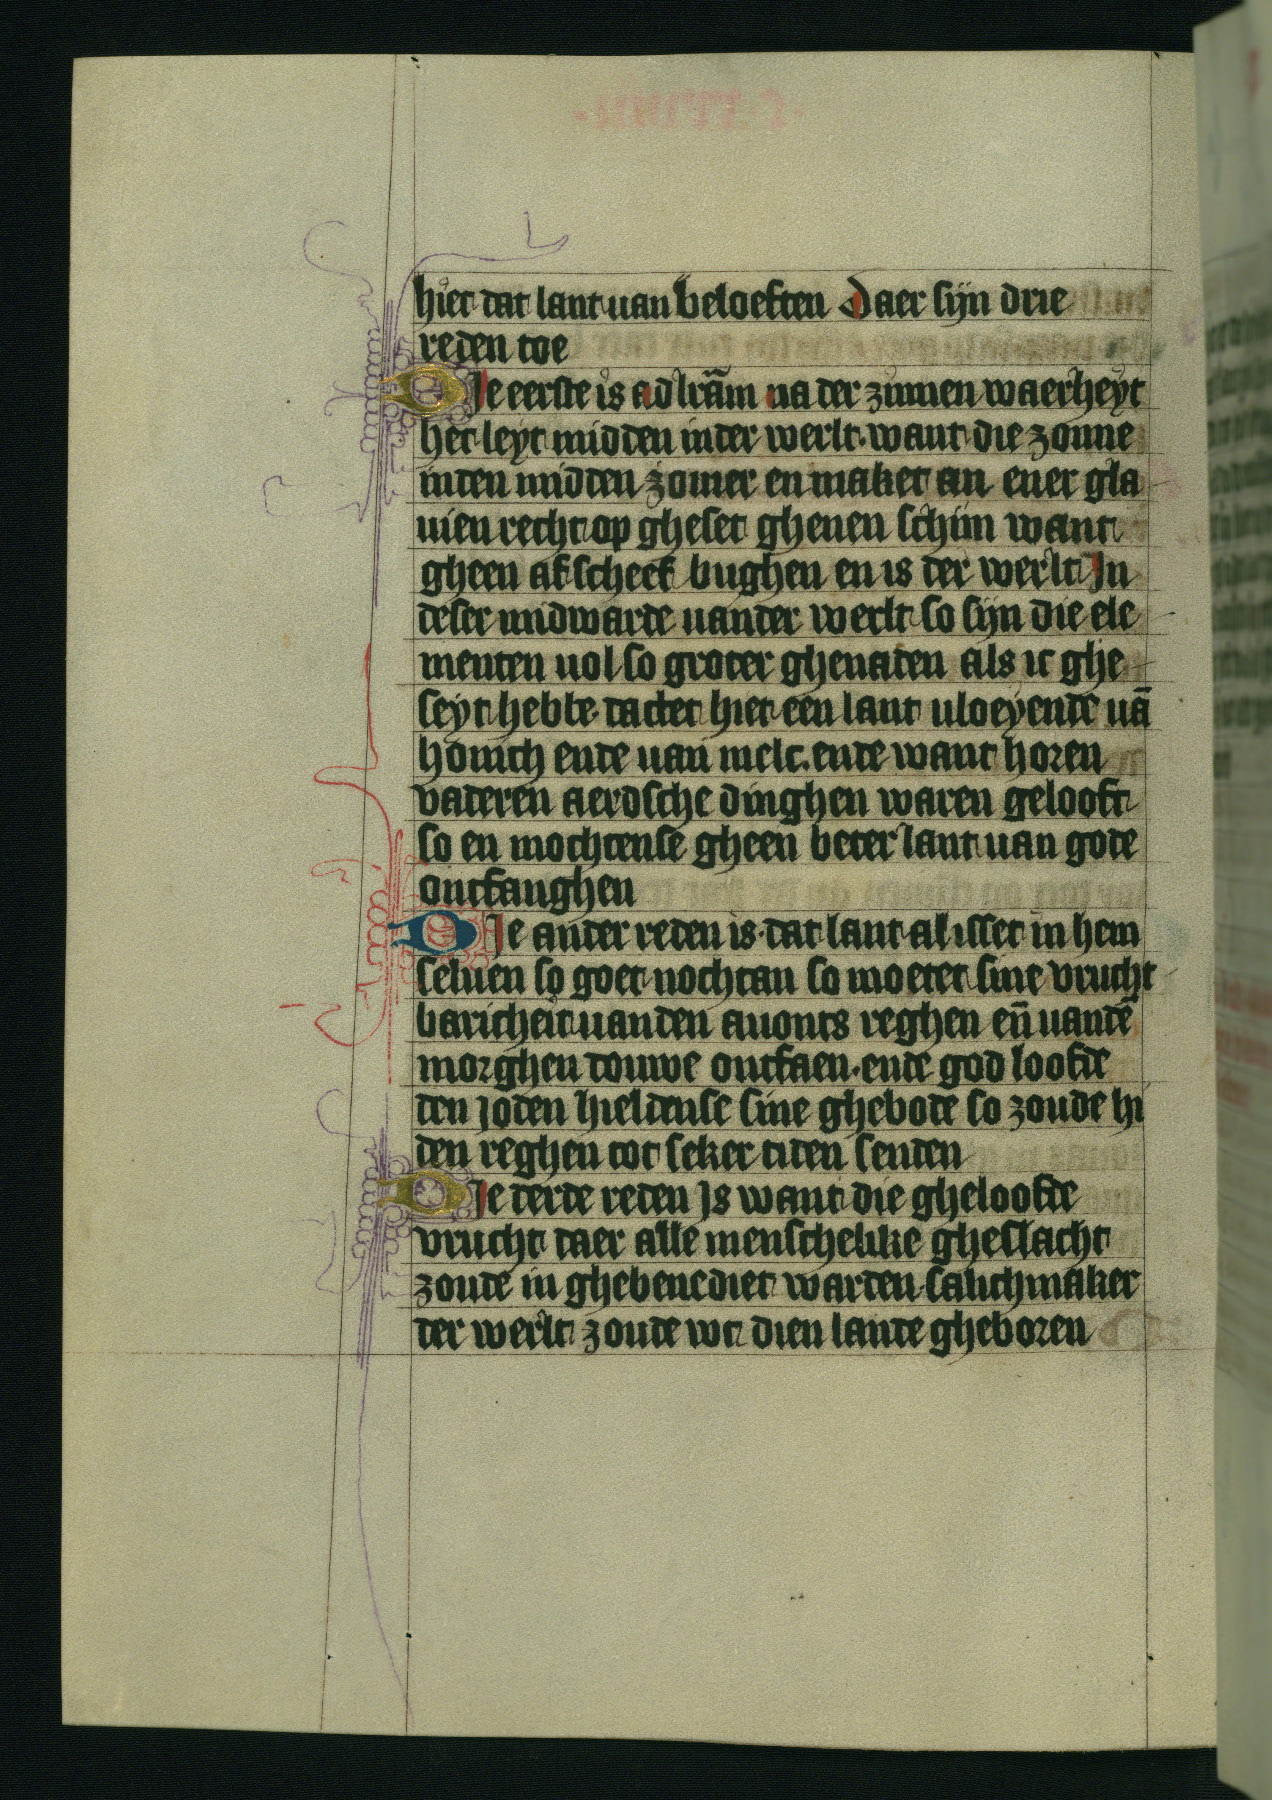 hiet dat lant uan beloeften Daer sijn drie
reden toe
DJe eerste is ad lrām na der zinnen waerheyt
het leyt midden inder werlt. want die zonne
inden midden zomer en maket an ener gla
uien recht op gheset ghenen schijn want
gheen afscheef bughen en is der werlt Jn
deser midwarde uander werlt so sijn die ele
menten uol so groter ghenaden als ic ghe
seyt hebbe dattet hiet een lant uloeyende uā
honich ende uan melc. ende want horen
vaderen aerdsche dinghen waren gelooft
so en mochtense gheen beter lant uan gode
ontfanghen
DJe ander reden is dat lant al isset in hem
seluen so goet nochtan so moetet sine vrucht
baricheit uanden auonts reghen en̄ uandē
morghen douwe ontfaen. ende god loofde
den joden hieldense sine ghebode so zoude hi
den reghen tot seker tiden senden
DJe derde reden Js want die gheloofde
vrucht daer alle menschelike gheslacht
zoude in ghebenediet warden salichmaker
der werlt zoude wt dien lande gheboren